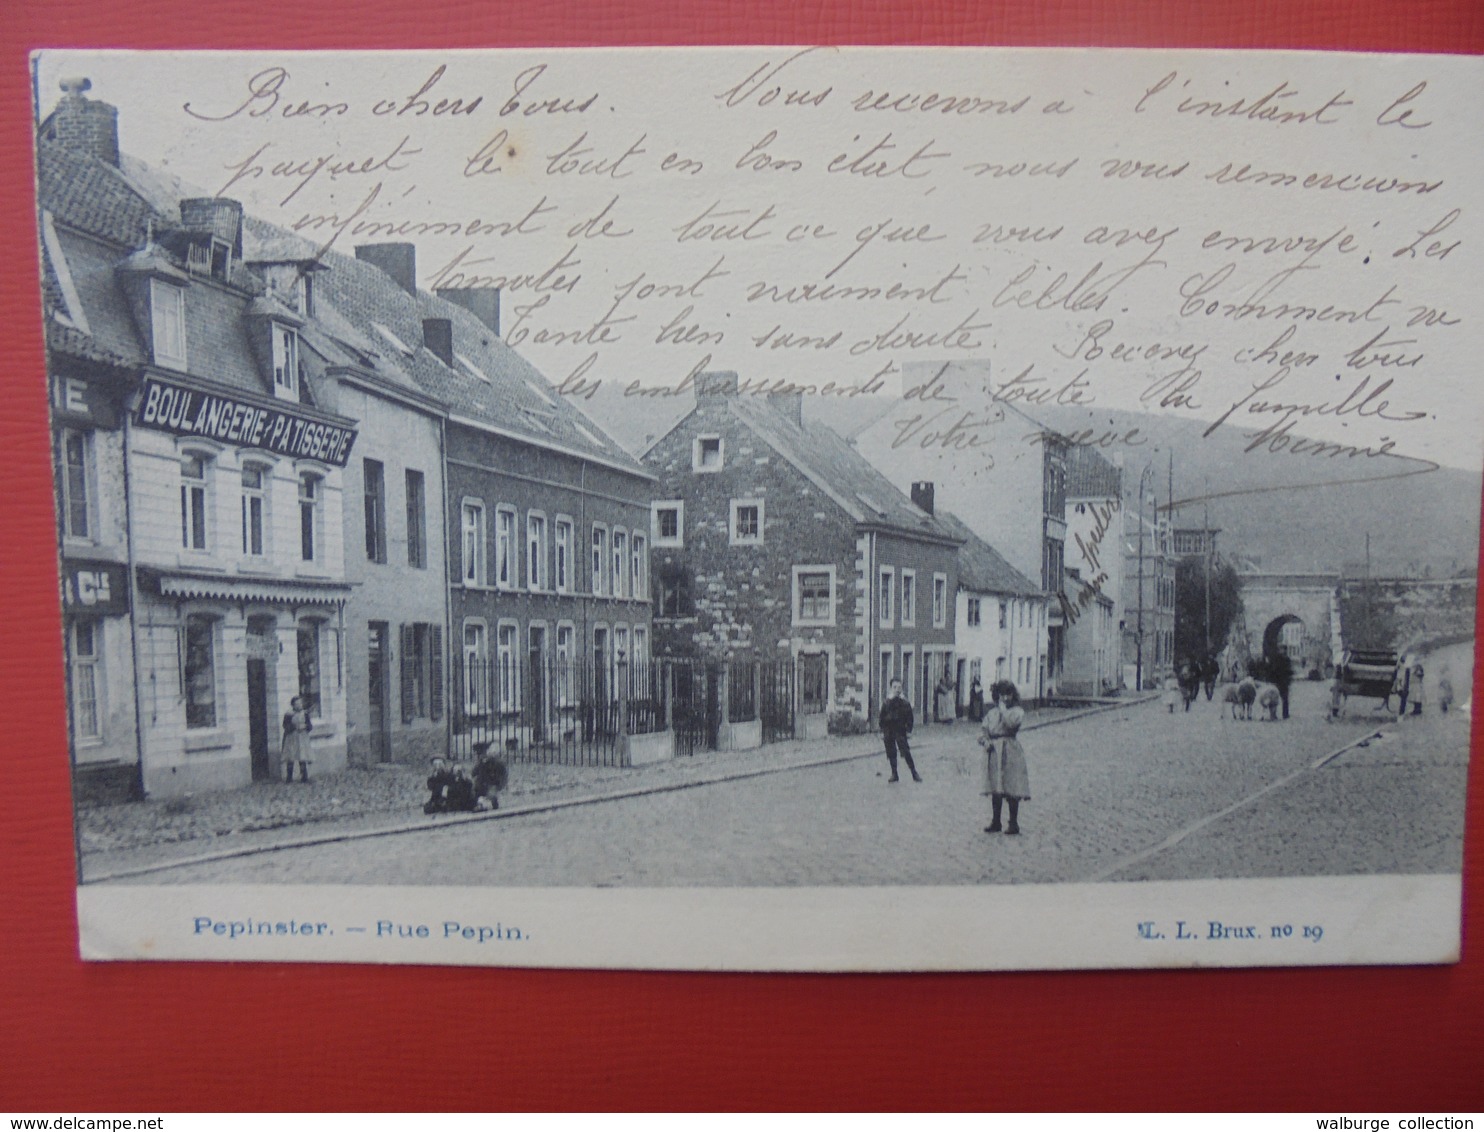 Bien chers Tous. Nous recevons à l'instant le
paquet le tout en bon état, nous vous remercions
infiniment de tout ce que vous avez envoyé. Les
tomates sont vraiment belles. Comment va
Tante bien sans doute. Recevez chers tous
les embrassements de toute la famille.
Votre nièce Mimie
BOULANGERIE & PATISSERIE
IE
& Cie
Pepinster. — Rue Pepin.
L. L. Brux. no 19
walburge collection